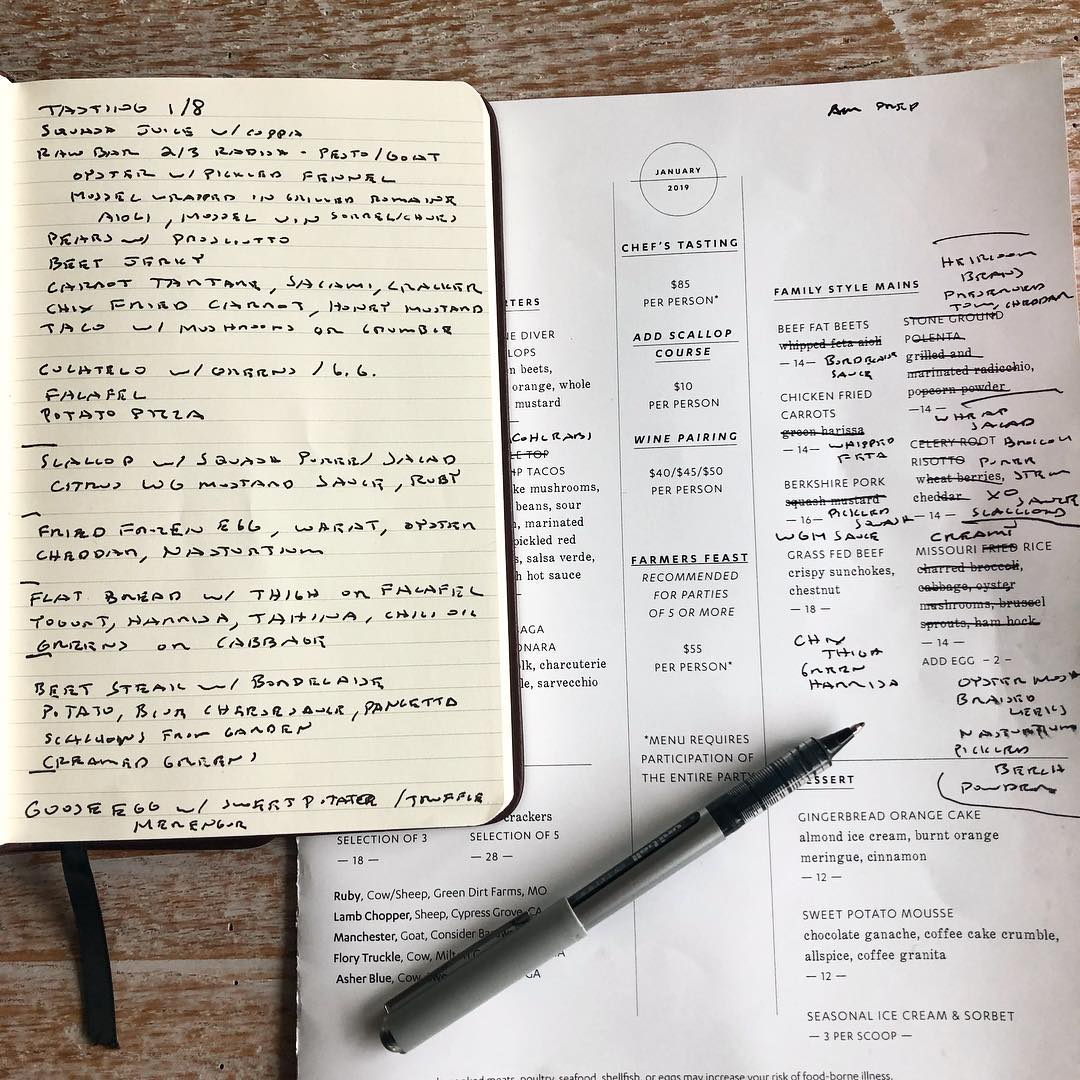 TASTING 1/8
SQUASH JUICE W/ COPPA
RAW BAR 2/3 RADISH - PESTO/GOAT
OYSTER W/ PICKLED FENNEL
MUSSEL WRAPPED IN GRILLED ROMAINE
AIOLI, MUSSEL VIN SORREL/CHIVES
PEARS W/ PROSCIUTTO
BEET JERKY
CARROT TARTARE, SALAMI, CRACKER
CHIX FRIED CARROT, HONEY MUSTARD
TACO W/ MUSHROOMS OR CRUMBLE
CULATELO W/ GREENS / G.G.
FALAFEL
POTATO PIZZA
SCALLOP W/ SQUASH PUREE/ SALAD
CITRUS WG MUSTARD SAUCE, RUBY
FRIED FROZEN EGG, WHEAT, OYSTER
CHEDDAR, NASTURTIUM
FLAT BREAD W/ THIGH OR FALAFEL
YOGURT, HARRISA, TAHINA, CHILI OIL
GREENS OR CABBAGE
BEET STEAK W/ BORDELAISE
POTATO, BLUE CHEESE SAUCE, PANCETTA
SCALLIONS FROM GARDEN
CREAMED GREENS
GOOSE EGG W/ SWEET POTATER / TRUFFLE
MERENGUE
AM PREP
JANUARY
2019
CHEF'S TASTING
$85
PER PERSON*
ADD SCALLOP
COURSE
$10
PER PERSON
WINE PAIRING
$40/$45/$50
PER PERSON
FARMERS FEAST
RECOMMENDED
FOR PARTIES
OF 5 OR MORE
$55
PER PERSON*
*MENU REQUIRES
PARTICIPATION OF
THE ENTIRE PARTY
RTERS
NE DIVER
LOPS
n beets,
orange, whole
mustard
KOHLRABI
LE TOP
IP TACOS
ke mushrooms,
beans, sour
, marinated
pickled red
s, salsa verde,
h hot sauce
BAGA
ONARA
olk, charcuterie
le, sarvecchio
crackers
SELECTION OF 3
— 18 —
SELECTION OF 5
— 28 —
Ruby, Cow/Sheep, Green Dirt Farms, MO
Lamb Chopper, Sheep, Cypress Grove, CA
Manchester, Goat, Consider
Flory Truckle, Cow,
Asher Blue, Cow,
GA
FAMILY STYLE MAINS
BEEF FAT BEETS
whipped feta aioli
— 14 — BORDELAISE
SAUCE
CHICKEN FRIED
CARROTS
green harissa
— 14 — WHIPPED
FETA
BERKSHIRE PORK
squash mustard
— 16 — PICKLED
SQUASH
WGM SAUCE
GRASS FED BEEF
crispy sunchokes,
chestnut
— 18 —
CHIX
THIGH
GREEN
HARRISA
HEIRLOOM
BEANS
PRESERVED
TOM, CHEDDAR
STONE GROUND
POLENTA
grilled and
marinated radicchio,
popcorn powder
— 14 —
WHEAT
SALAD
CELERY ROOT BROCCOLI
RISOTTO PUREE
wheat berries, STEM
cheddar XO
SAUCE
— 14 — SCALLIONS
CREAMY
MISSOURI FRIED RICE
charred broccoli,
cabbage, oyster
mushrooms, brussel
sprouts, ham hock
— 14 —
ADD EGG – 2 –
OYSTER MUSH
BRAISED
LEEKS
NASTURTIUM
PICKLED
POWDER
DESSERT
GINGERBREAD ORANGE CAKE
almond ice cream, burnt orange
meringue, cinnamon
— 12 —
SWEET POTATO MOUSSE
chocolate ganache, coffee cake crumble,
allspice, coffee granita
— 12 —
SEASONAL ICE CREAM & SORBET
— 3 PER SCOOP —
ooked meats, poultry, seafood, shellfish, or eggs may increase your risk of food-borne illness.